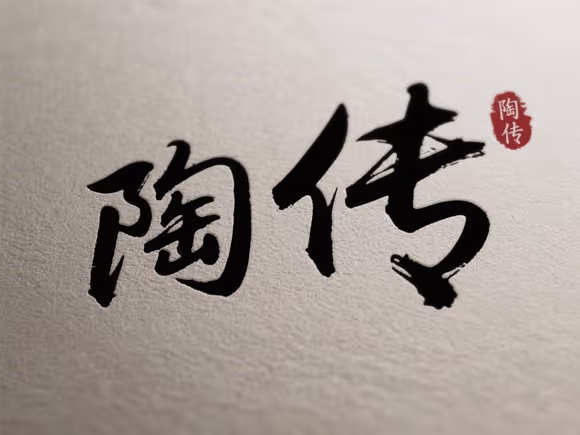 陶传
陶
传